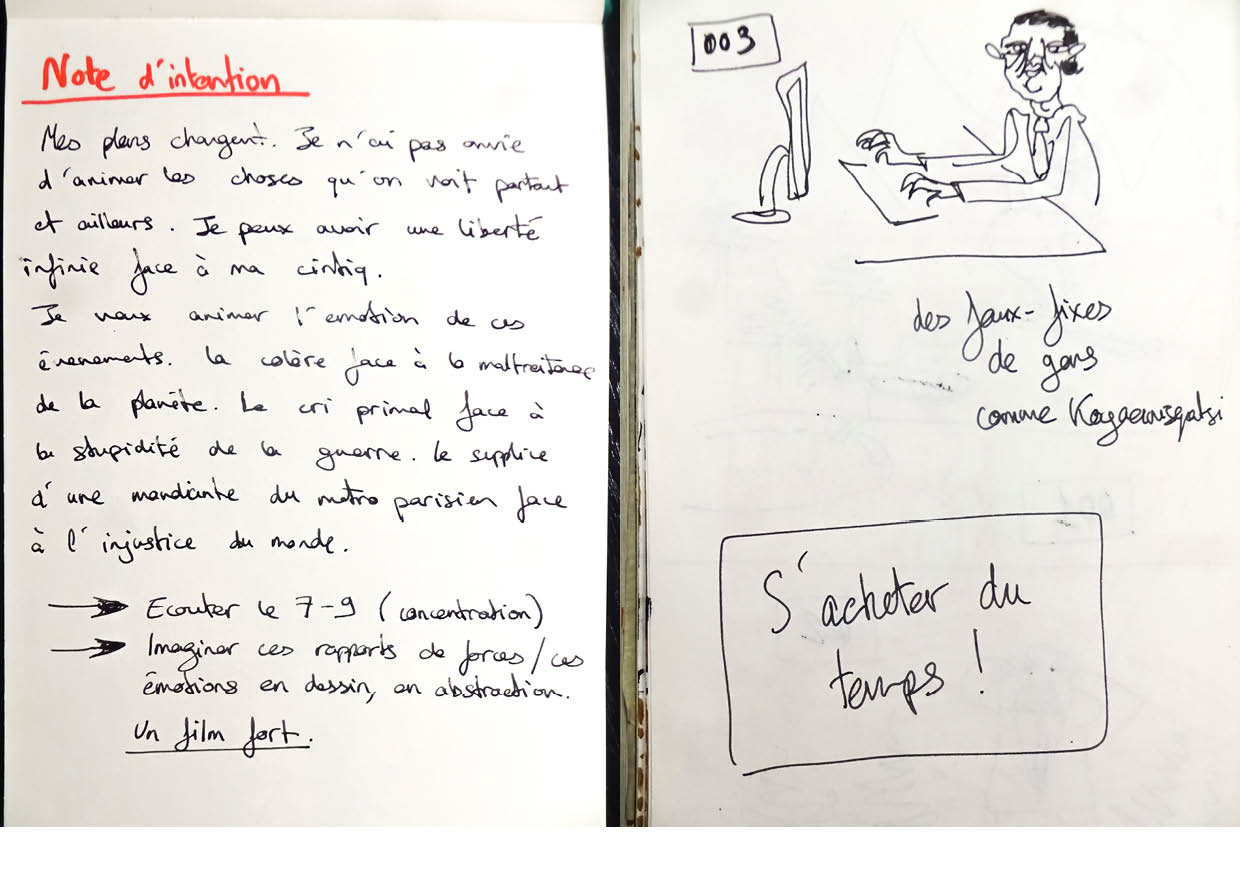 Note d'intention
Mes plans changent. Je n'ai pas envie
d'animer les choses qu'on voit partout
et ailleurs. Je peux avoir une liberté
infinie face à ma cintiq.
Je veux animer l'emotion de ces
évenements. La colère face à la maltraitance
de la planète. Le cri primal face à
la stupidité de la guerre. Le supplice
d'une mendiante du métro parisien face
à l'injustice du monde.
Ecouter le 7-9 (concentration)
Imaginer ces rapports de forces/ces
émotions en dessin, en abstraction.
Un film fort.
003
des faux-fixes
de gens
comme Koyaanisqatsi
S'acheter du
temps !